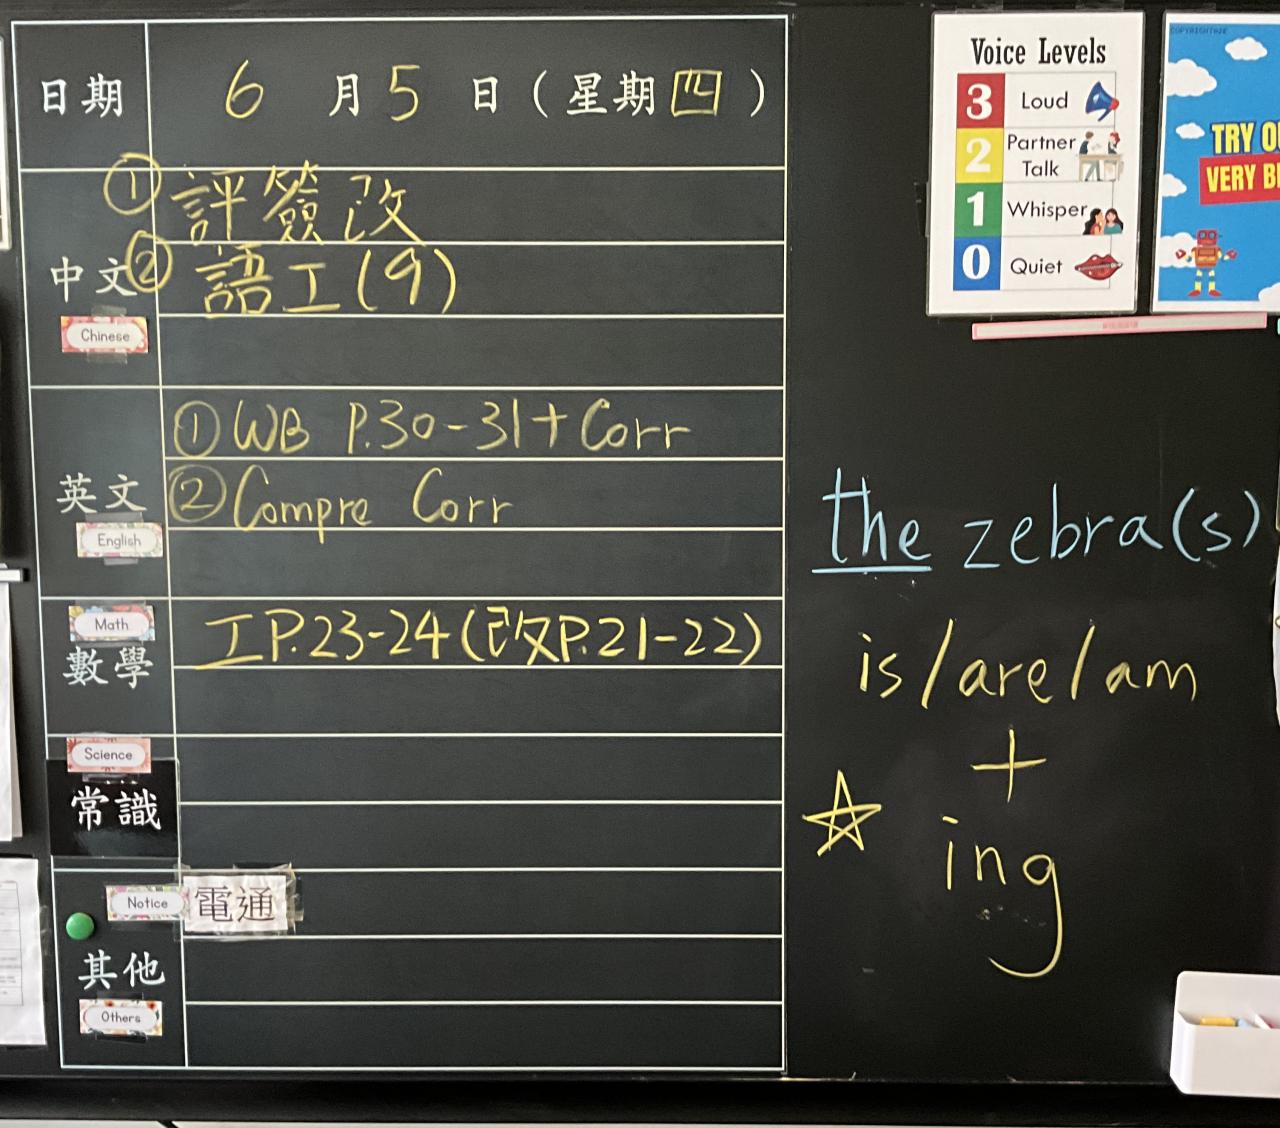 日期 6 月 5 日 ( 星期 四 )
中文
Chinese
① 評簽改
② 語工(9)
英文
English
① WB P.30-31 + Corr
② Compre Corr
Math
數學
工P.23-24 (改P.21-22)
Science
常識
Notice
電通
其他
Others
Voice Levels
3 Loud
2 Partner Talk
1 Whisper
0 Quiet
COPYRIGHT
TRY
VERY
the zebra(s)
is/are/am
+
ing